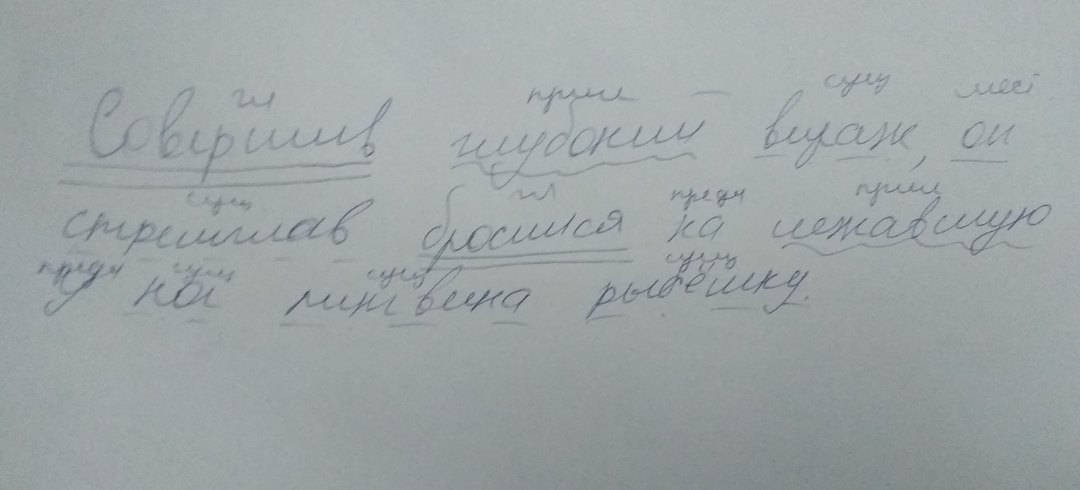 гл прил сущ мест
Совершив глубокий вираж, он
сущ гл предл прил
стремглав бросился на лежавшую
предл сущ сущ сущ
у ног пингвина рыбёшку.